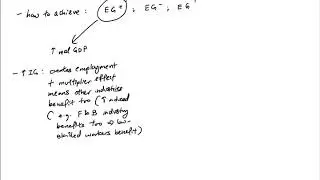 - how to achieve : EG⁺, EG⁻, EG
↑ real GDP
- ↑ IG: creates employment
+ multiplier effect
means other industries
benefit too (↑
(e.g. F&B industry
benefits too ⇒ low-
skilled workers benefit)